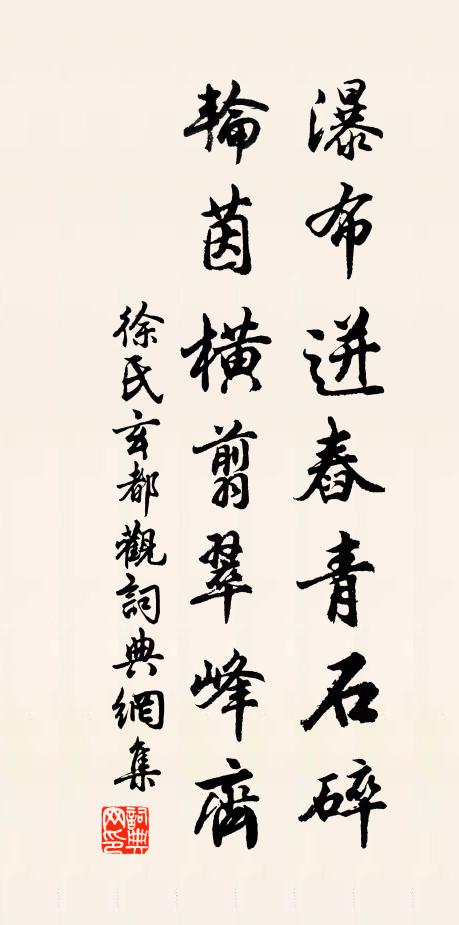 瀑布迸舂青石碎
輪茵橫翦翠峰齊
徐氏玄都觀詞典網集
詞典網印